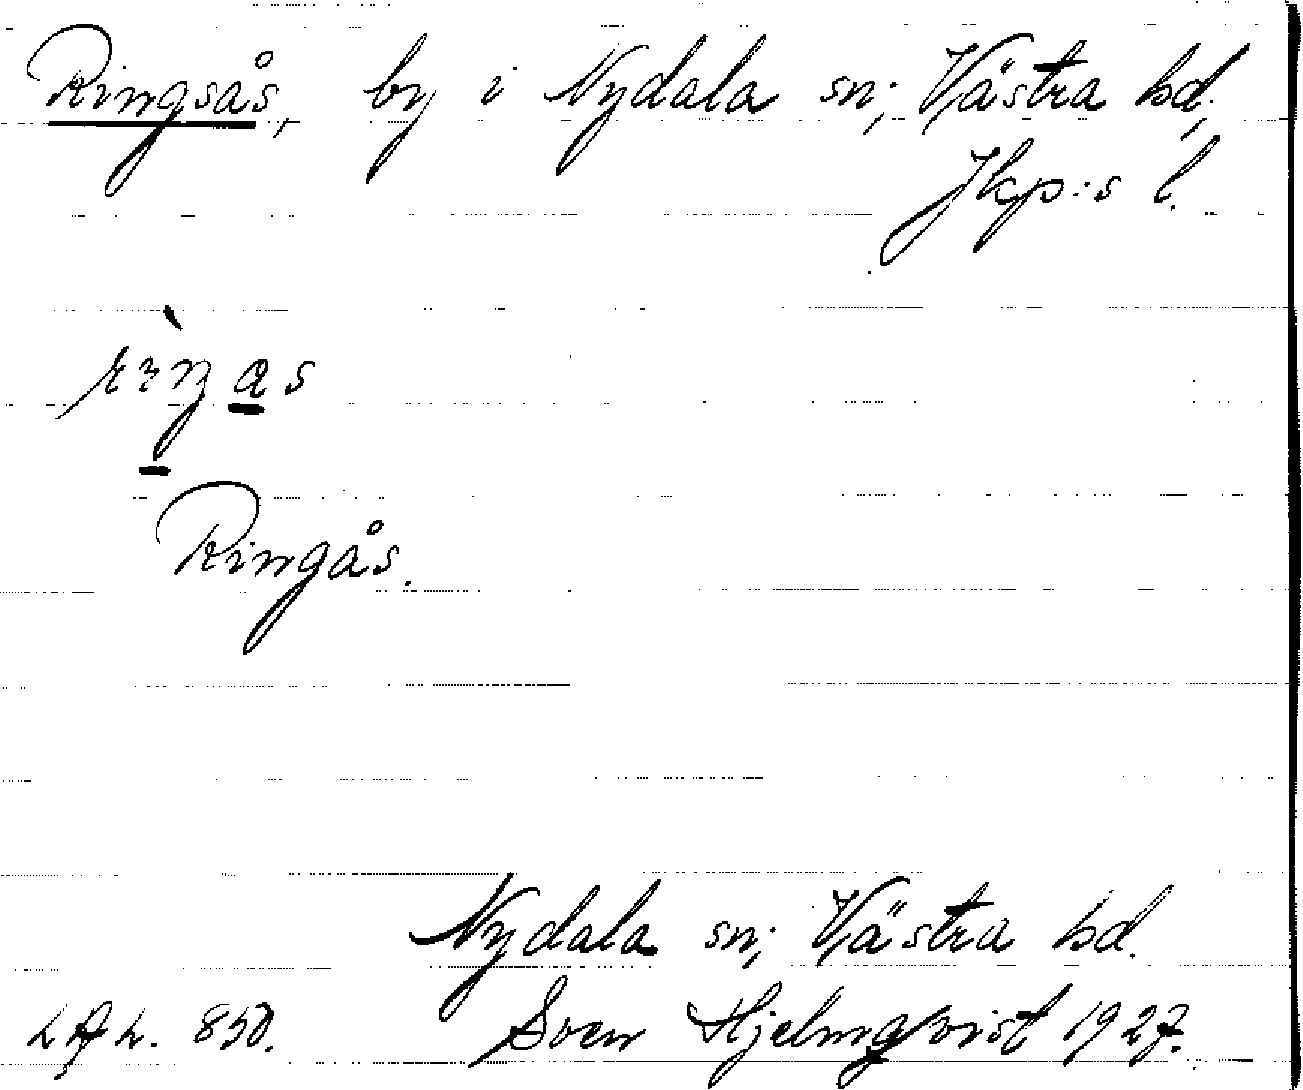 Ringsås, by i Nydala sn; Västra hd;
Jkp:s l.
Ringås.
Nydala sn; Västra hd.
Sven Hjelmqvist 1927.